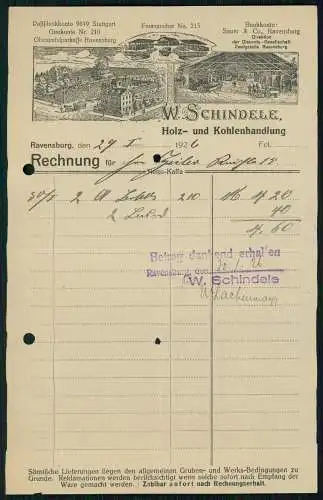 Postscheckkonto 9849 Stuttgart
Girokonto Nr. 210
Oberamtssparkasse Ravensburg
Fernsprecher No. 215
Bankkonto:
& Co., Ravensburg
Direktion
der Disconto-Gesellschaft
Zweigstelle Ravensburg
W. SCHINDELE,
Holz- und Kohlenhandlung
Ravensburg, den 29 I 1926 Fol.
Rechnung für
Netto-Kassa
30/I 2 210 M 4.20
2 40
4.60
Betrag dankend erhalten
Ravensburg, den 30/I 26
W. Schindele
Sämtliche Lieferungen liegen den allgemeinen Gruben- und Werks-Bedingungen zu
Grunde. Reklamationen werden berücksichtigt wenn solche sofort nach Empfang der
Ware gemacht werden. Zahlbar sofort nach Rechnungserhalt.